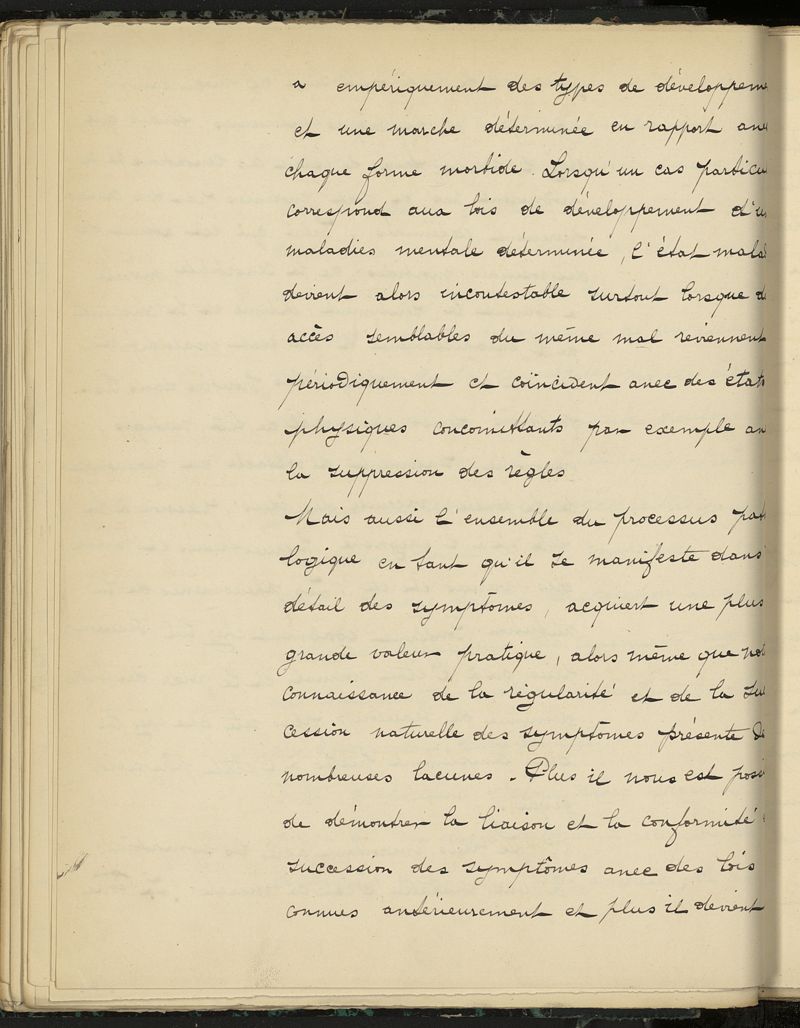 a empériquement des types de développeme
et une marche déterminée en rapport avec
chaque forme morbide. Lorsqu'un cas particu
correspond aux lois de développement d'u
maladies mentale déterminée, l'état mala
devient alors incontestable surtout lorsque d
accès semblables du même mal reviennent
périodiquement et coïncident avec des états
physiques concomittants par exemple av
la suppression des règles
Mais aussi l'ensemble du processus pat
logique en tant qu'il se manifeste dans
détail des symptômes, acquiert une plus
grande valeur pratique, alors même que not
connaissance de la régularité et de la suc
cession naturelle des symptômes présente de
nombreuses lacunes. Plus il nous est possi
de démontrer la liaison et la conformité
succession des symptômes avec des lois
connues antérieurement et plus il devient